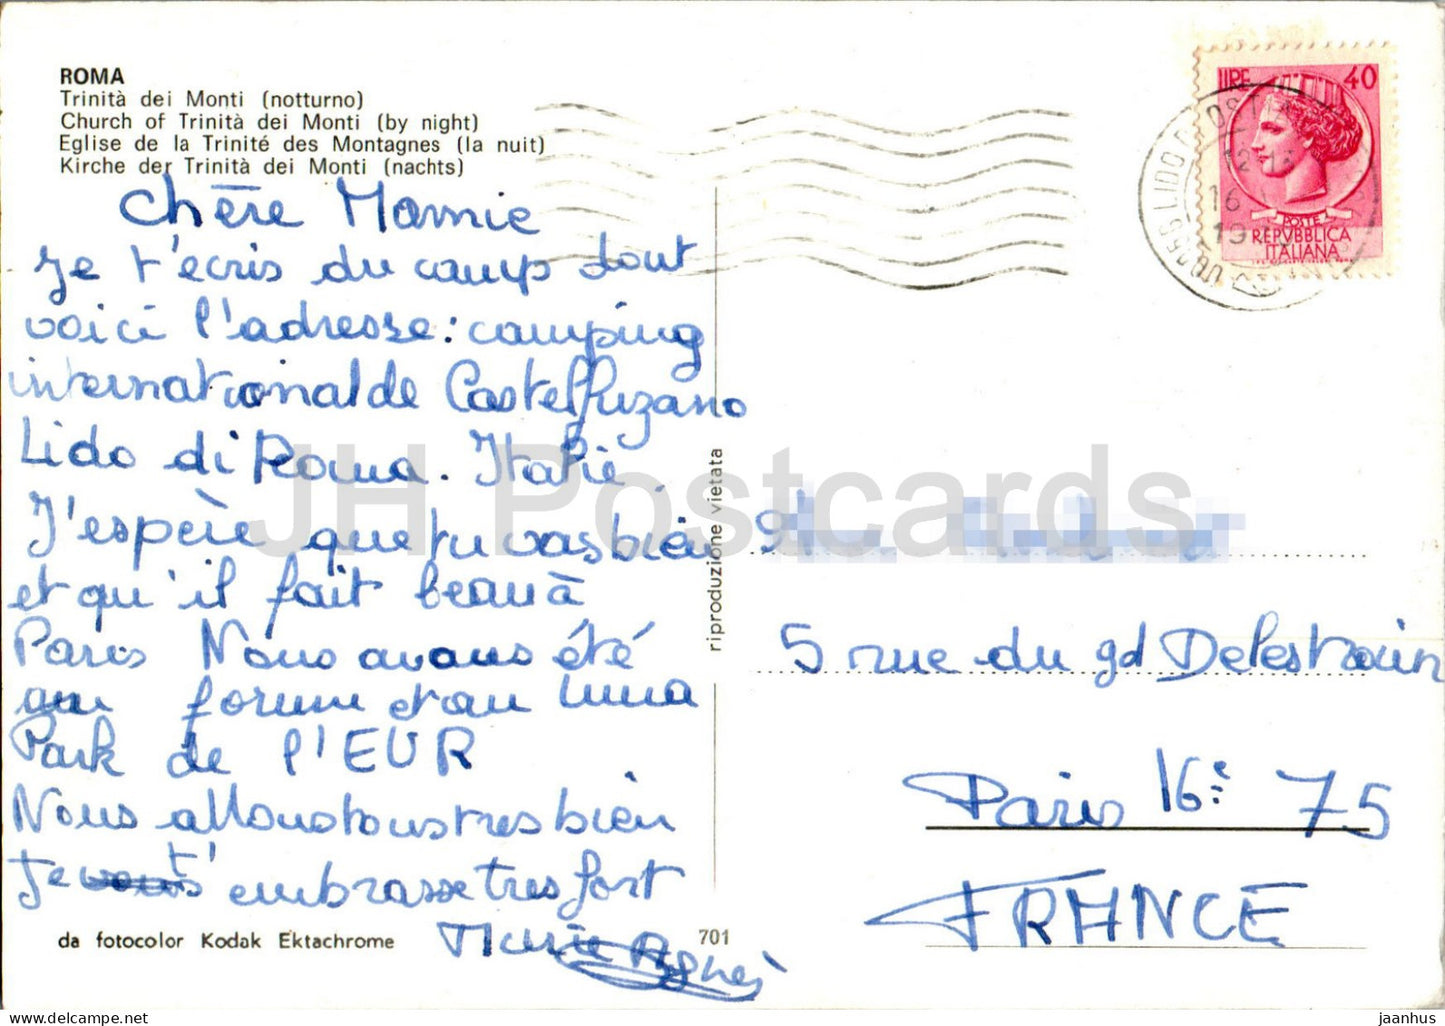 ROMA
Trinità dei Monti (notturno)
Church of Trinità dei Monti (by night)
Eglise de la Trinité des Montagnes (la nuit)
Kirche der Trinità dei Monti (nachts)
Chère Mamie
Je t'ecris du camp dont
voici l'adresse: camping
international de Castelfuzano
Lido di Roma. Italie.
J'espère que tu vas bien
et qu'il fait beau à
Paris Nous avons été
au forum et au luna
Park de l'EUR
Nous allons tous tres bien
Je t'embrasse tres fort
Marie Agnès
da fotocolor Kodak Ektachrome
701
riproduzione vietata
LIRE 40
POSTE
REPVBBLICA
ITALIANA
LIDO
16
5 rue du gd Delestrain
Paris 16è 75
FRANCE
JH Postcards
delcampe.net
jaanhus